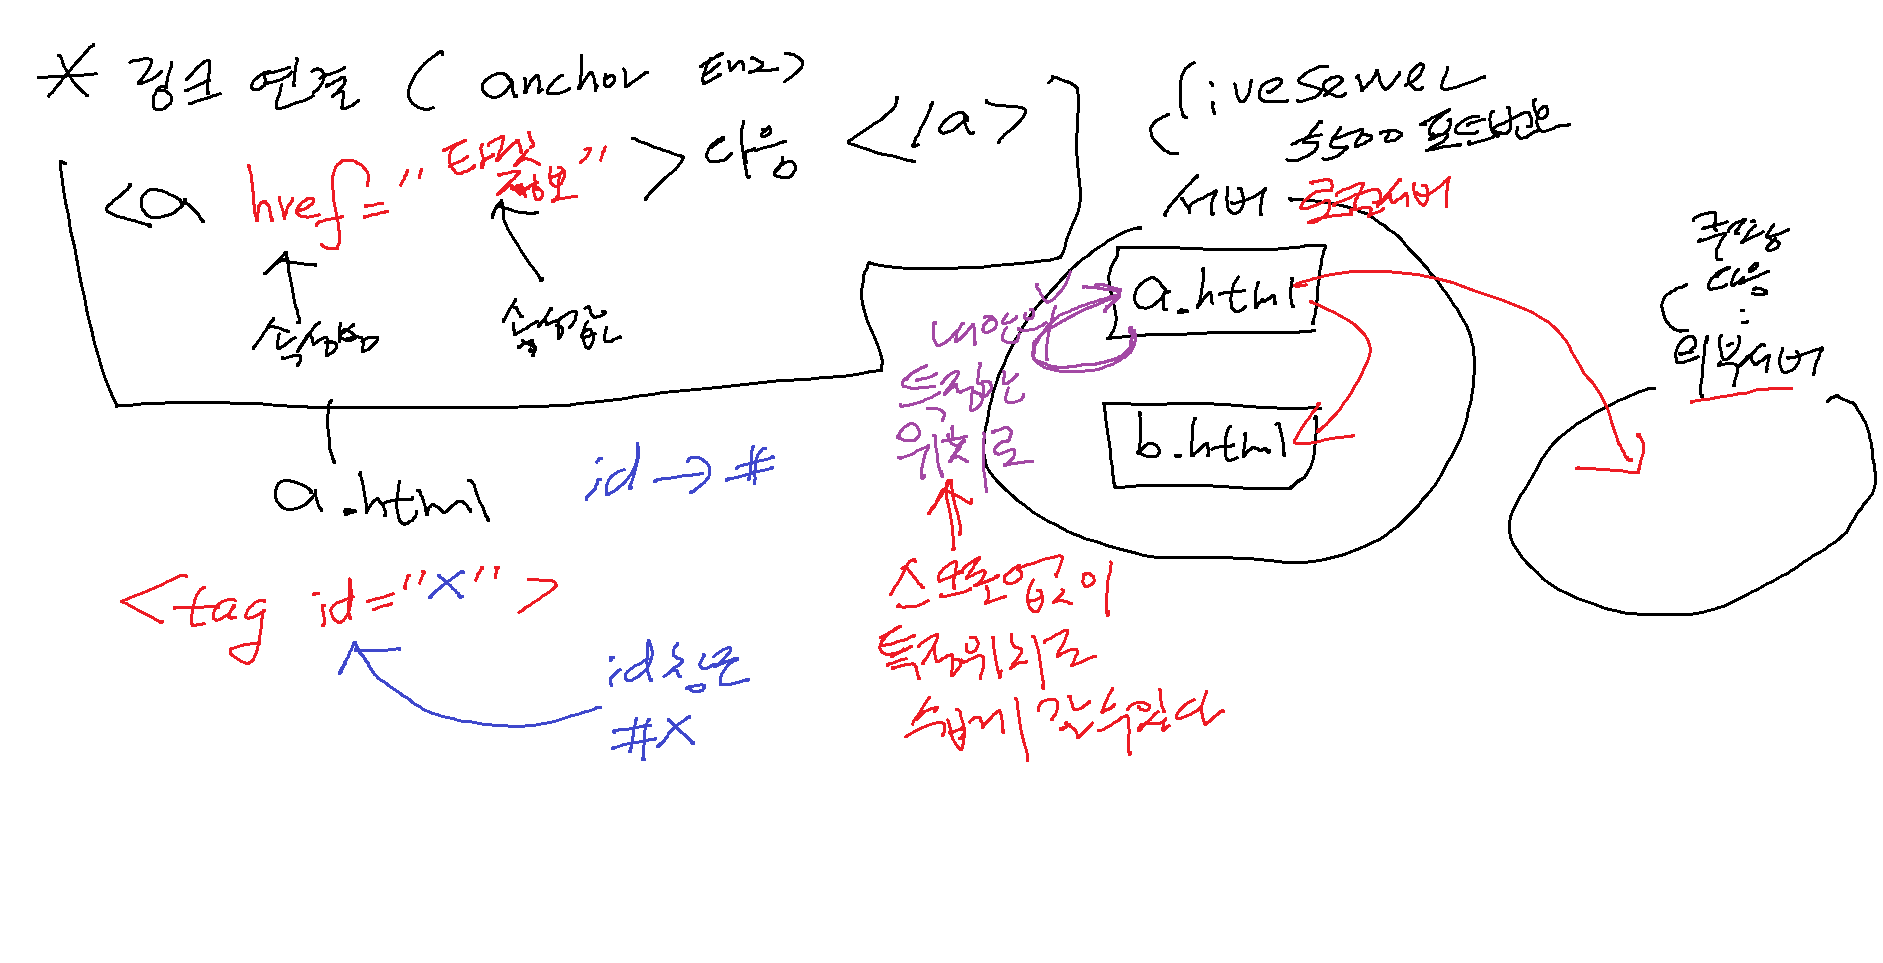 * 링크 연결 ( anchor 태그)
<a href="타겟 정보"> 다음 </a>
속성명
속성값
a.html
id → #
<tag id="x">
id참조
#x
liveServer
5500 포트번호
서버 로컬서버
a.html
b.html
내안의
특정한
위치로
스크롤없이
특정위치로
쉽게 갈수있다
다음
외부서버